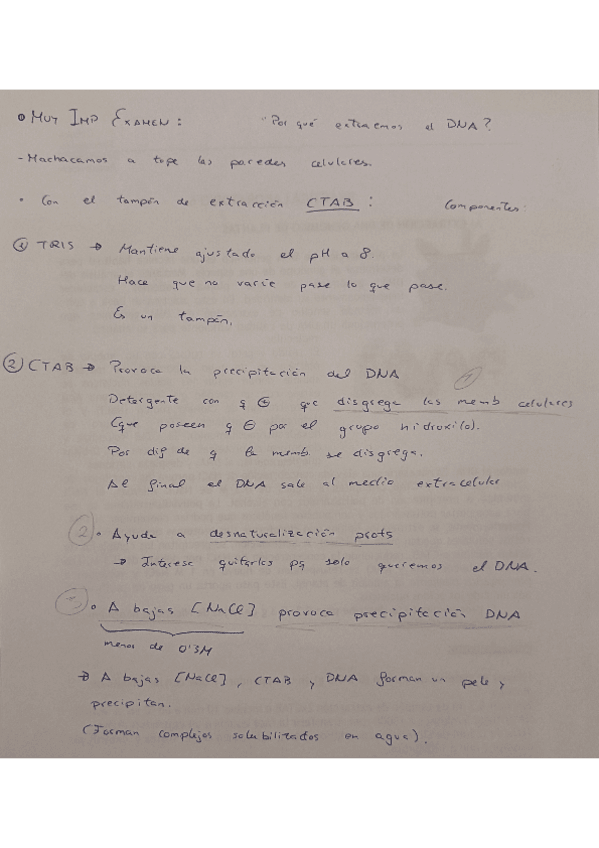 • MUY IMP EXAMEN: "Por qué extraemos el DNA?
- Machacamos a tope las paredes celulares.
• Con el tampón de extracción CTAB: Componentes:
① TRIS → Mantiene ajustado el pH a 8.
Hace que no varíe pase lo que pase.
Es un tampón.
② CTAB → Provoca la precipitación del DNA
Detergente con q ⊕ que disgrega las memb celulares ①
(que poseen q ⊖ por el grupo hidroxilo).
Por dif de q la memb. se disgrega.
Al final el DNA sale al medio extracelular
② • Ayuda a desnaturalización prots
→ Interesa quitarlas pq solo queremos el DNA.
• A bajas [NaCl] provoca precipitación DNA
menos de 0'3M
→ A bajas [NaCl], CTAB y DNA forman un y
precipitan.
(Forman complejos solubilizados en agua).